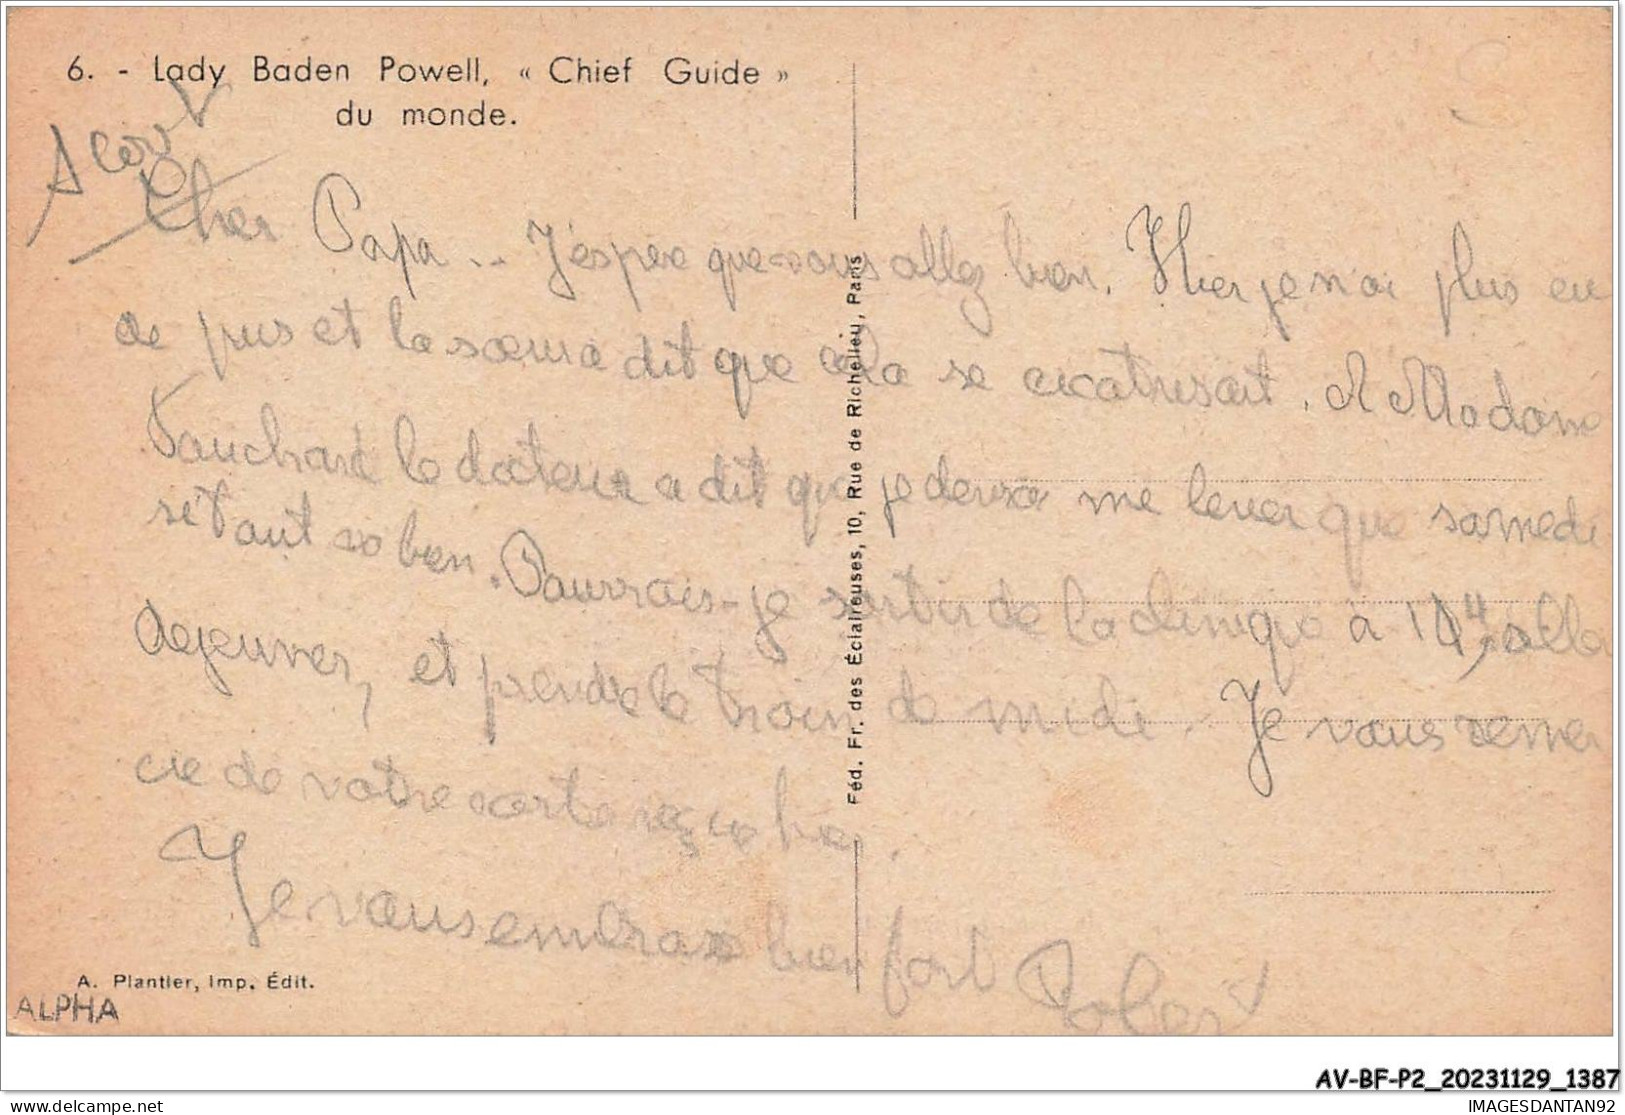 6. - Lady Baden Powell, « Chief Guide »
du monde.
Cher Papa .. J'espère que vous allez bien. Hier je n'ai plus eu
de pus et la sœur a dit que cela se cicatrisait. A Madame
Fauchard le docteur a dit que je devrai me lever que samedi
bien. Pourrais-je sortir de la clinique à 11 4,
dejeuner, et prendre le train de midi. Je vous remer
cie de votre carte reçue hier.
Je vous embrasse bien fort Robert
Féd. Fr. des Éclaireuses, 10, Rue de Richelieu, Paris
A. Plantier, Imp. Édit.
ALPHA
AV-BF-P2_20231129_1387
delcampe.net
IMAGESDANTAN92